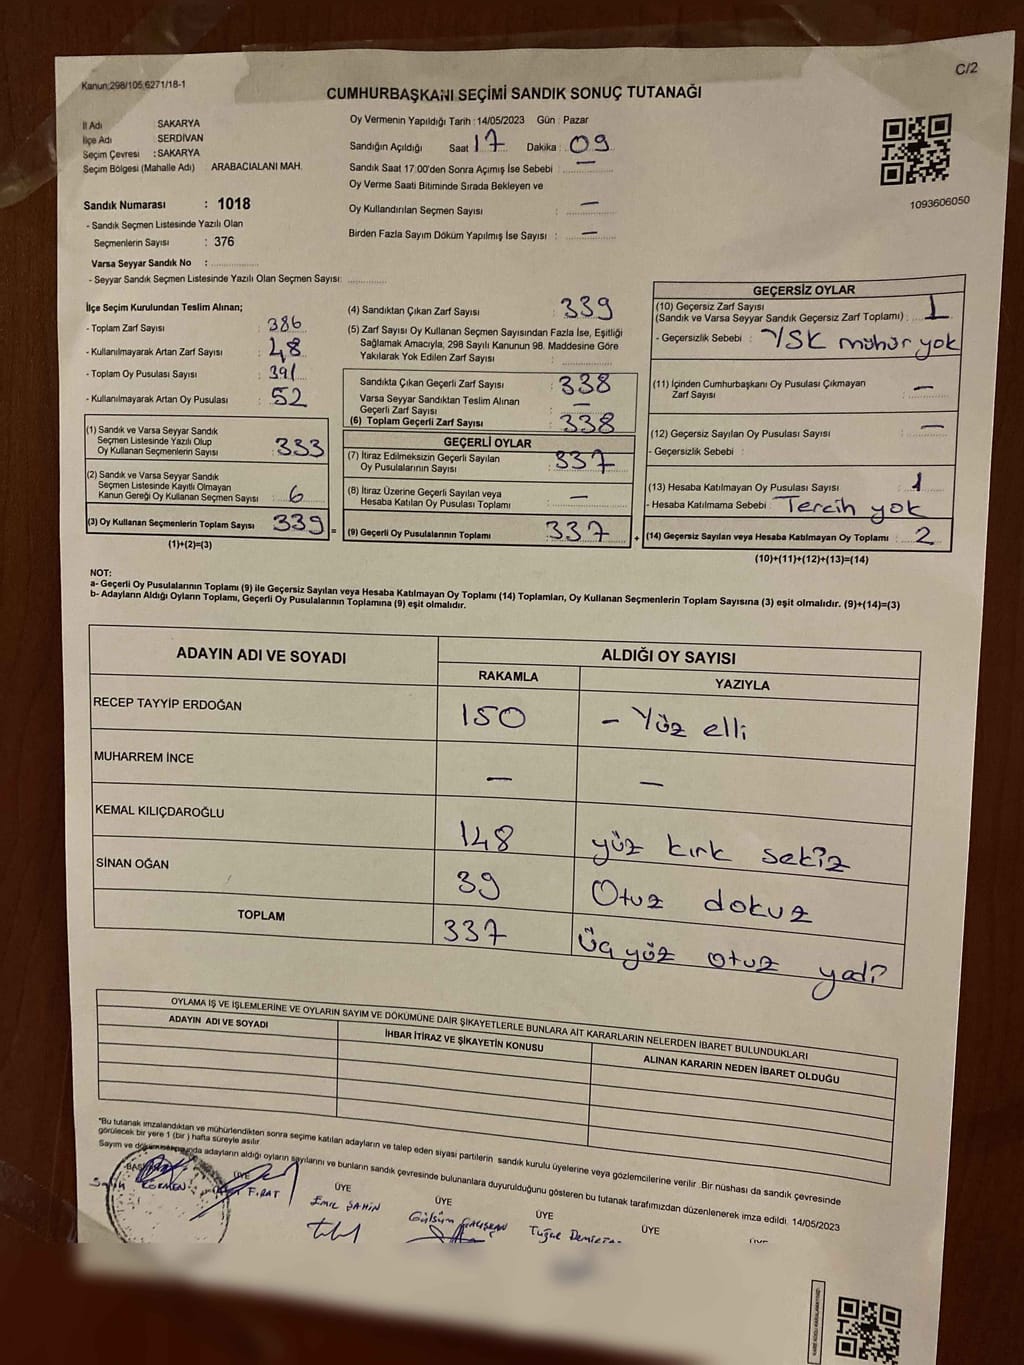 Kanun:298/105;6271/18-1
C/2
CUMHURBAŞKANI SEÇİMİ SANDIK SONUÇ TUTANAĞI
İl Adı : SAKARYA
İlçe Adı : SERDİVAN
Seçim Çevresi : SAKARYA
Seçim Bölgesi (Mahalle Adı) ARABACIALANI MAH.
Sandık Numarası : 1018
- Sandık Seçmen Listesinde Yazılı Olan
Seçmenlerin Sayısı : 376
Varsa Seyyar Sandık No :
- Seyyar Sandık Seçmen Listesinde Yazılı Olan Seçmen Sayısı:
Oy Vermenin Yapıldığı Tarih : 14/05/2023 Gün : Pazar
Sandığın Açıldığı Saat 17 Dakika : 09
Sandık Saat 17:00'den Sonra Açımış İse Sebebi : —
Oy Verme Saati Bitiminde Sırada Bekleyen ve
Oy Kullandırılan Seçmen Sayısı : —
Birden Fazla Sayım Döküm Yapılmış İse Sayısı : —
1093606050
İlçe Seçim Kurulundan Teslim Alınan;
- Toplam Zarf Sayısı : 386
- Kullanılmayarak Artan Zarf Sayısı : 48
- Toplam Oy Pusulası Sayısı : 391
- Kullanılmayarak Artan Oy Pusulası : 52
(1) Sandık ve Varsa Seyyar Sandık
Seçmen Listesinde Yazılı Olup
Oy Kullanan Seçmenlerin Sayısı : 333
(2) Sandık ve Varsa Seyyar Sandık
Seçmen Listesinde Kayıtlı Olmayan
Kanun Gereği Oy Kullanan Seçmen Sayısı : 6
(3) Oy Kullanan Seçmenlerin Toplam Sayısı : 339 =
(1)+(2)=(3)
(4) Sandıktan Çıkan Zarf Sayısı : 339
(5) Zarf Sayısı Oy Kullanan Seçmen Sayısından Fazla İse, Eşitliği
Sağlamak Amacıyla, 298 Sayılı Kanunun 98. Maddesine Göre
Yakılarak Yok Edilen Zarf Sayısı :
Sandıkta Çıkan Geçerli Zarf Sayısı : 338
Varsa Seyyar Sandıktan Teslim Alınan
Geçerli Zarf Sayısı : —
(6) Toplam Geçerli Zarf Sayısı : 338
GEÇERLİ OYLAR
(7) İtiraz Edilmeksizin Geçerli Sayılan
Oy Pusulalarının Sayısı : 337
(8) İtiraz Üzerine Geçerli Sayılan veya
Hesaba Katılan Oy Pusulası Toplamı : —
(9) Geçerli Oy Pusulalarının Toplamı : 337 +
GEÇERSİZ OYLAR
(10) Geçersiz Zarf Sayısı
(Sandık ve Varsa Seyyar Sandık Geçersiz Zarf Toplamı) : 1
- Geçersizlik Sebebi : YSK mühür yok
(11) İçinden Cumhurbaşkanı Oy Pusulası Çıkmayan
Zarf Sayısı : —
(12) Geçersiz Sayılan Oy Pusulası Sayısı : —
- Geçersizlik Sebebi :
(13) Hesaba Katılmayan Oy Pusulası Sayısı : 1
- Hesaba Katılmama Sebebi : Tercih yok
(14) Geçersiz Sayılan veya Hesaba Katılmayan Oy Toplamı : 2
(10)+(11)+(12)+(13)=(14)
NOT:
a- Geçerli Oy Pusulalarının Toplamı (9) ile Geçersiz Sayılan veya Hesaba Katılmayan Oy Toplamı (14) Toplamları, Oy Kullanan Seçmenlerin Toplam Sayısına (3) eşit olmalıdır. (9)+(14)=(3)
b- Adayların Aldığı Oyların Toplamı, Geçerli Oy Pusulalarının Toplamına (9) eşit olmalıdır.
ADAYIN ADI VE SOYADI
ALDIĞI OY SAYISI
RAKAMLA YAZIYLA
RECEP TAYYİP ERDOĞAN 150 - Yüz elli
MUHARREM İNCE — —
KEMAL KILIÇDAROĞLU 148 yüz kırk sekiz
SİNAN OĞAN 39 Otuz dokuz
TOPLAM 337 Üçyüz otuz yedi
OYLAMA İŞ VE İŞLEMLERİNE VE OYLARIN SAYIM VE DÖKÜMÜNE DAİR ŞİKAYETLERLE BUNLARA AİT KARARLARIN NELERDEN İBARET BULUNDUKLARI
ADAYIN ADI VE SOYADI İHBAR İTİRAZ VE ŞİKAYETİN KONUSU ALINAN KARARIN NEDEN İBARET OLDUĞU
*Bu tutanak imzalandıktan ve mühürlendikten sonra seçime katılan adayların ve talep eden siyasi partilerin sandık kurulu üyelerine veya gözlemcilerine verilir. Bir nüshası da sandık çevresinde
görülecek bir yere 1 (bir) hafta süreyle asılır.
Sayım ve döküm adayların aldığı oyların sayılarını ve bunların sandık çevresinde bulunanlara duyurulduğunu gösteren bu tutanak tarafımızdan düzenlenerek imza edildi. 14/05/2023
ÜYE ÜYE ÜYE ÜYE ÜYE
FIRAT EMEL ŞAHİN Gülsüm ÇALIŞKAN Tuğçe